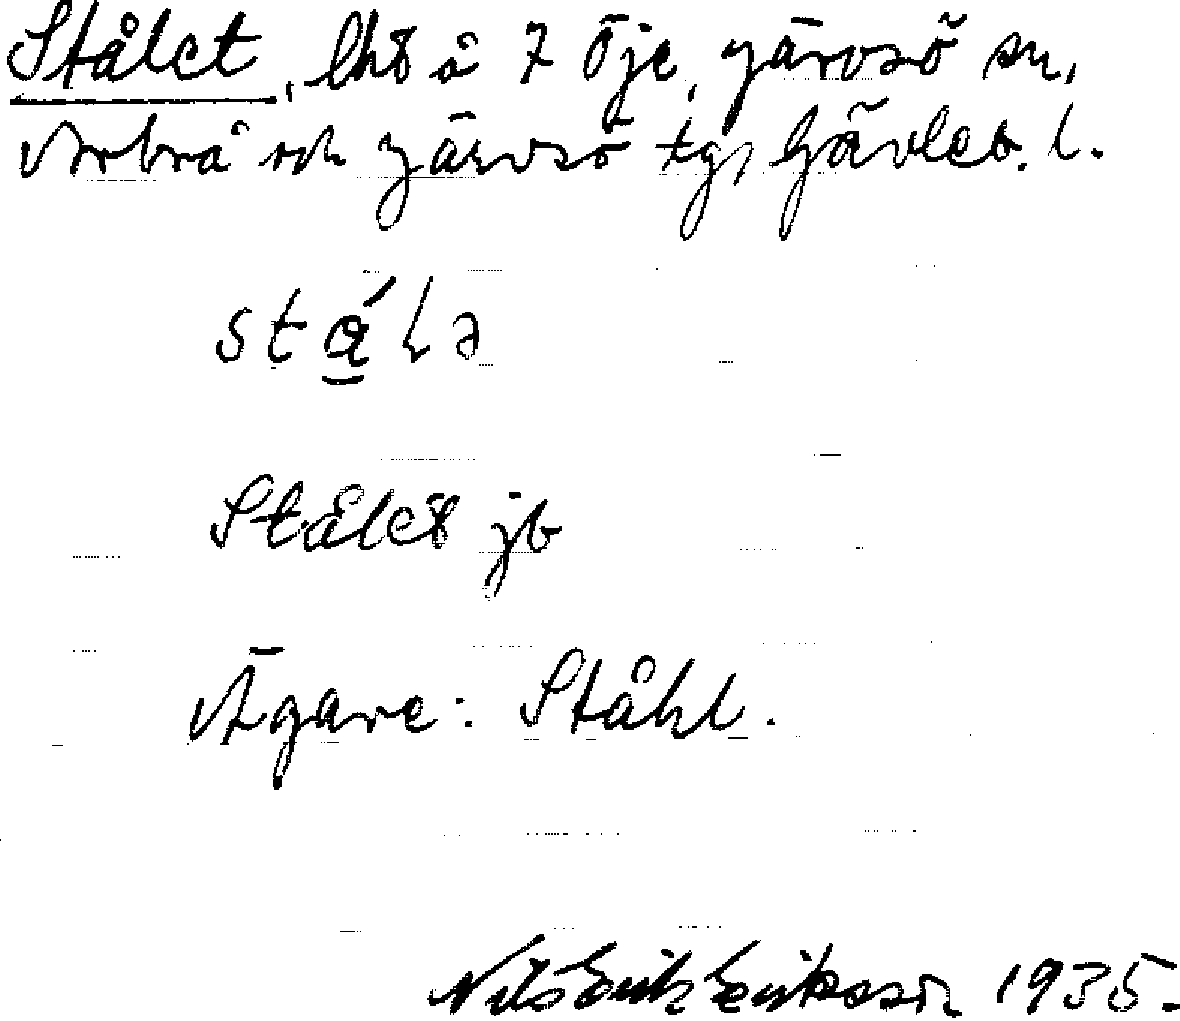 Stålet, lht å 7 Öje, Järvsö sn,
Arbrå och Järvsö tg, Gävleb. l.
stá̱lə
Stålet jb
Ägare: Ståhl.
Nils Erik Eriksson 1935.